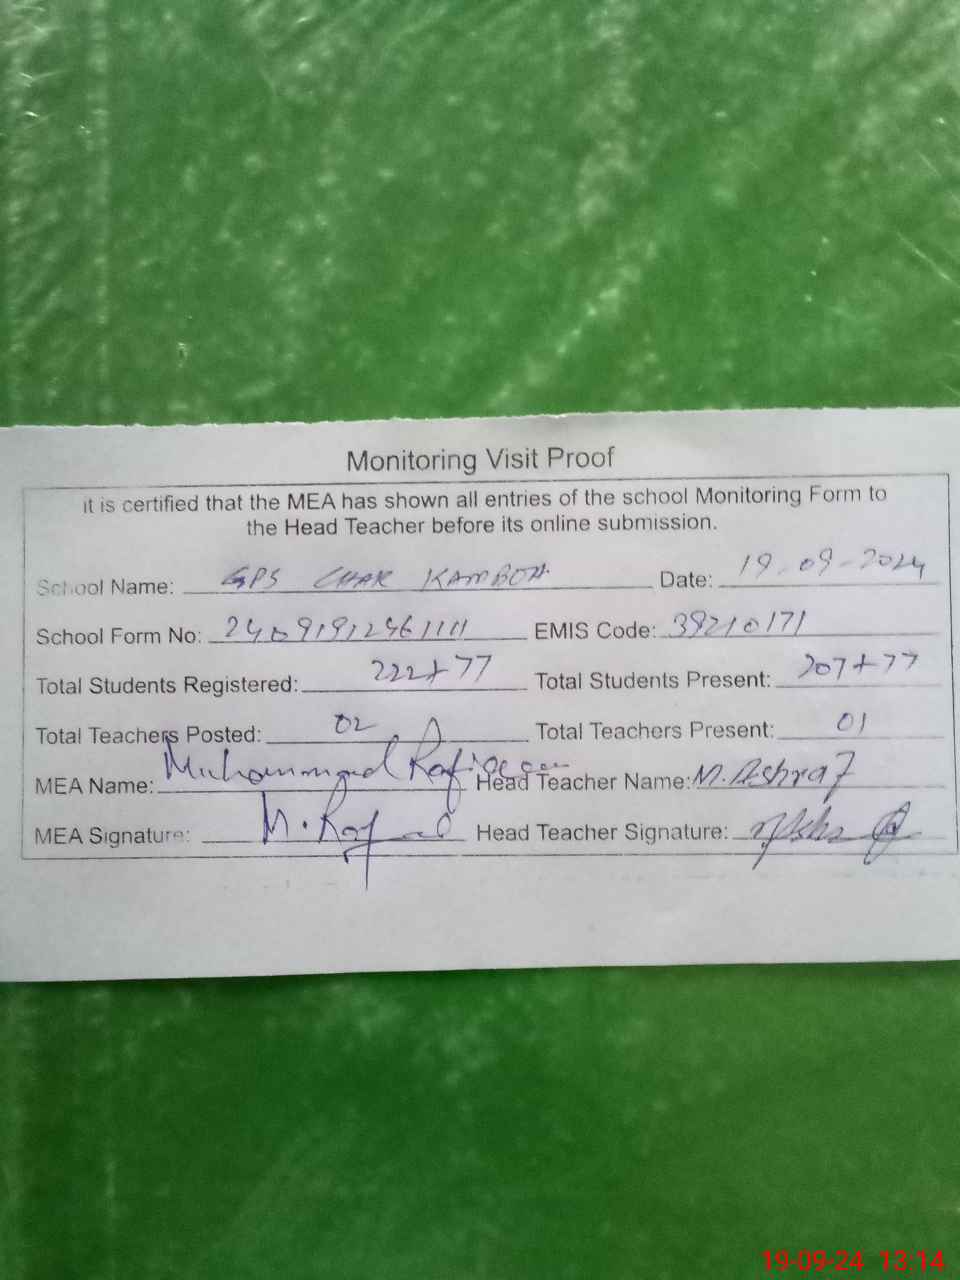 Monitoring Visit Proof
it is certified that the MEA has shown all entries of the school Monitoring Form to
the Head Teacher before its online submission.
School Name: GPS CHAK KAMBOH Date: 19-09-2024
School Form No: 24091912461111 EMIS Code: 39210171
Total Students Registered: 222+77 Total Students Present: 207+77
Total Teachers Posted: 02 Total Teachers Present: 01
MEA Name: Muhammad Head Teacher Name: M. Ashraf
MEA Signature: Head Teacher Signature:
19-09-24 13:14